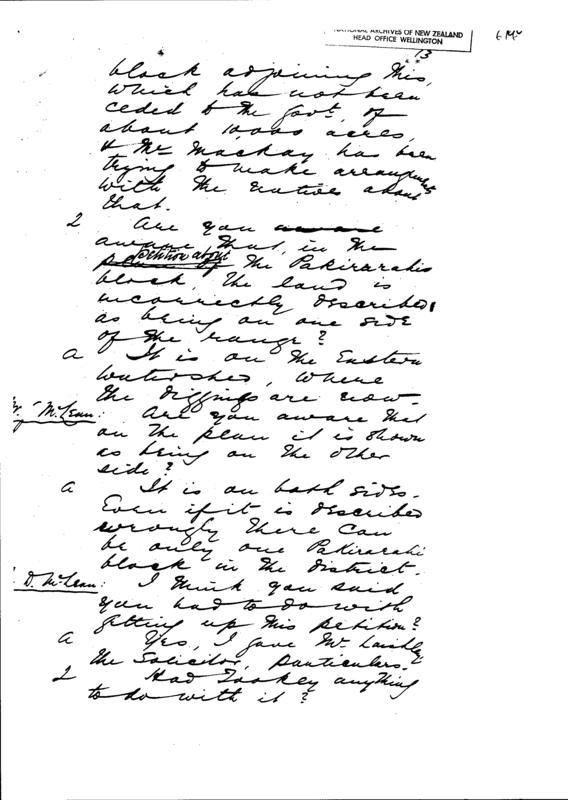 NATIONAL ARCHIVES OF NEW ZEALAND
HEAD OFFICE WELLINGTON
13
block adjoining this,
which has not been
ceded to the Govt, of
about 10,000 acres,
& Mr Mackay has been
trying to make arrangements
with the natives about
that.
Q Are you aware
aware that, in the
petition about the Pakirarahi
block, the land is
incorrectly described,
as being on one side
of the range?
a It is on the Eastern
watershed, where
the diggings are now.
McLean: Are you aware that
on the plan it is shown
as being on the other
side?
a It is on both sides.
Even if it is described
wrongly there can
be only one Pakirarahi
block in the district.
D. McLean: I think you said
you had to do with
getting up this petition?
a Yes, I gave Mr. Laishley
the Solicitor, particulars.
Q Had Tookey anything
to do with it?